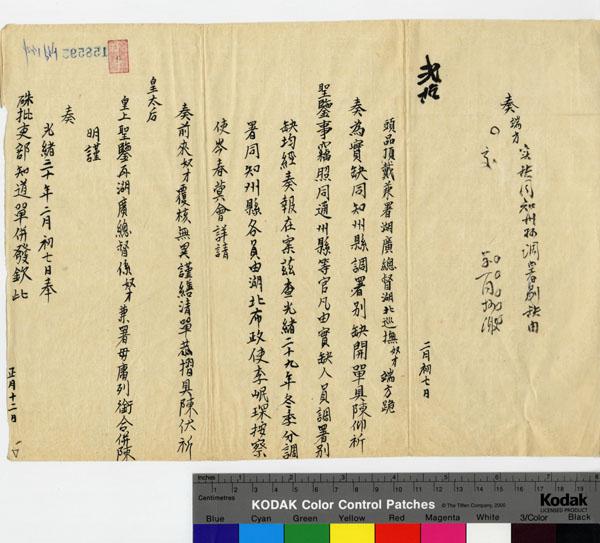 奏 端方 實缺同知州縣調署別缺由
二月初七日
頭品頂戴兼署湖廣總督湖北巡撫奴才端方跪
奏為實缺同知州縣調署別缺開單具陳仰祈
聖鑒事竊照同通州縣等官凡由實缺人員調署別
缺均經奏報在案茲查光緒二十九年冬季分調
署同知州縣各員由湖北布政使李岷琛按察
使岑春蓂會詳請
奏前來奴才覆核無異謹繕清單恭摺具陳伏祈
皇太后
皇上聖鑒再湖廣總督係奴才兼署毋庸列銜合併陳
明謹
奏
光緒三十年二月初七日奉
硃批吏部知道單併發欽此
正月十二日
158595
Inches 1 2 3 4 5 6 7 8
Centimetres 1 2 3 4 5 6 7 8 9 10 11 12 13 14 15 16 17 18 19
KODAK Color Control Patches © The Tiffen Company, 2000
Kodak
LICENSED PRODUCT
Blue Cyan Green Yellow Red Magenta White 3/Color Black